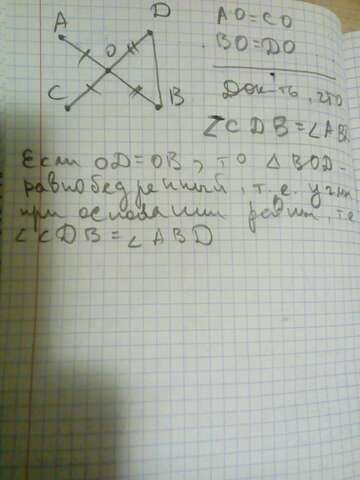 A
D
AO=CO
O
BO=DO
C
B
Док-ть, что
∠CDB=∠AB
Если OD=OB, то △BOD-
равнобедренный, т.е. углы
при основании равны, т.е
∠CDB=∠ABD